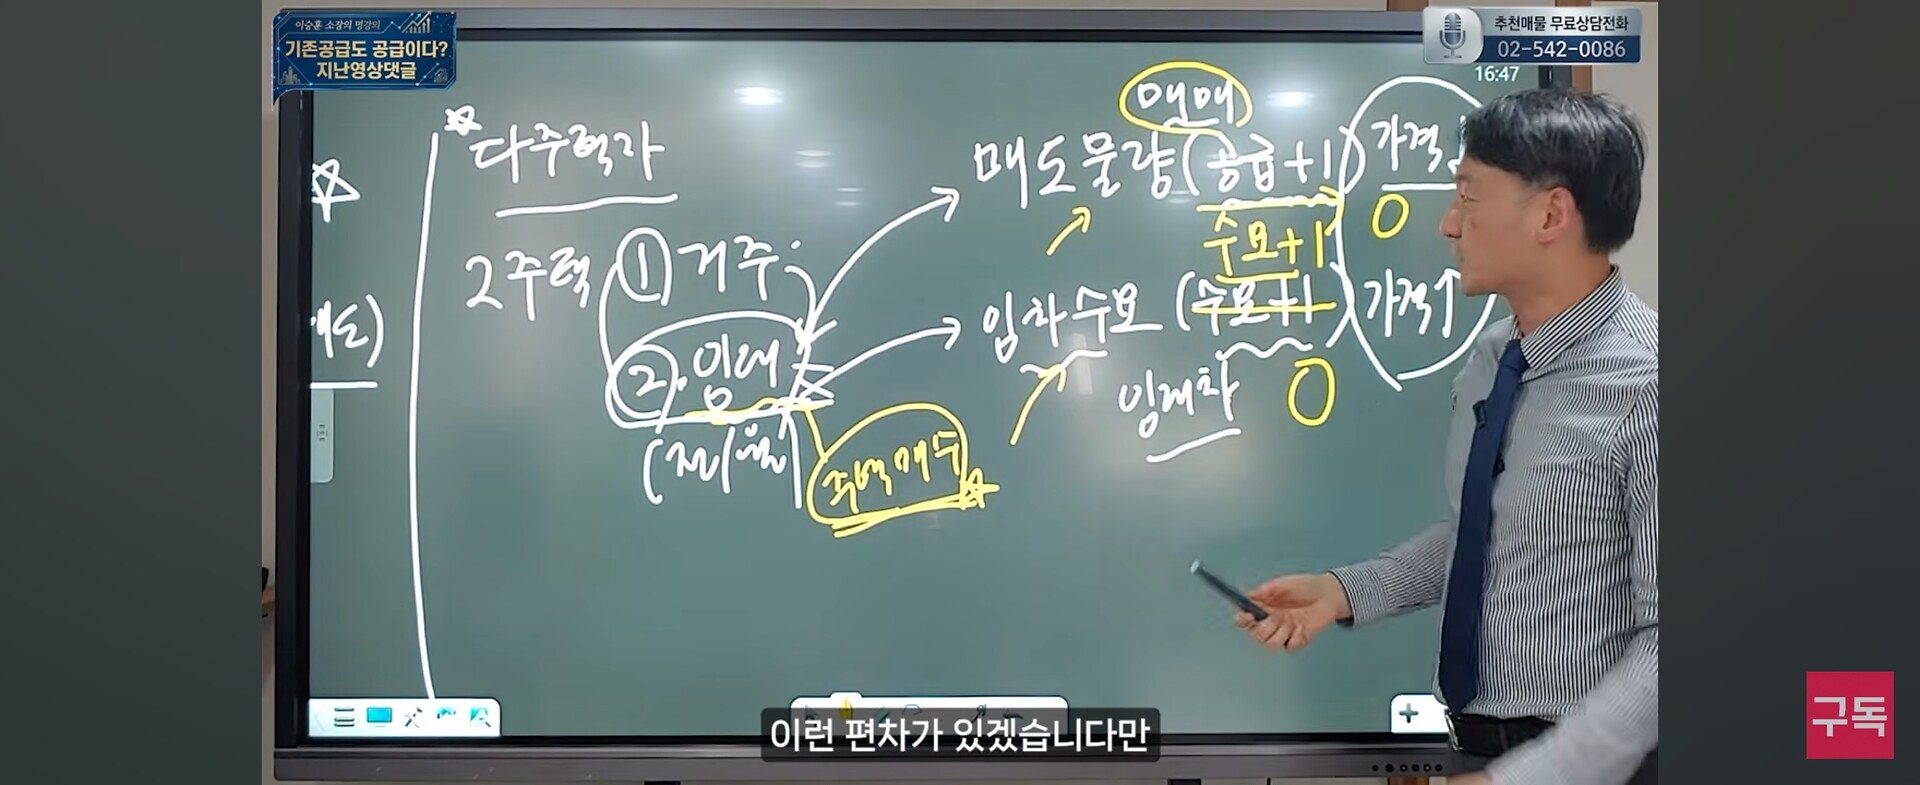 이승훈 소장의 명강의
기존공급도 공급이다?
지난영상댓글
추천매물 무료상담전화
02-542-0086
16:47
매매
☆다주택자
매도물량(공급+1) 가격↓
☆
수요+1 0
2주택 ① 거주
임차수요(수요+1) 가격↑
매도)
② 임대
임대차 0
(전/월)
주택매수
이런 편차가 있겠습니다만
구독